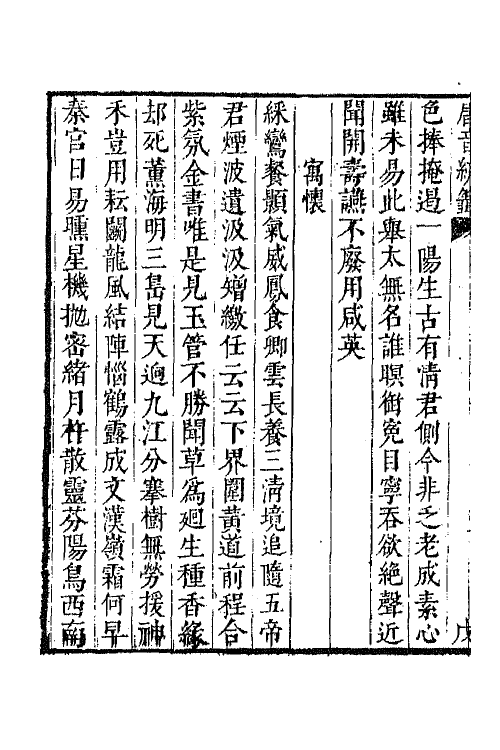 色捧掩過一陽生古有情君側今非乏老成素心
雖未易此舉太無名誰暝銜寃目寧吞欲絶聲近
聞開壽讌不廢用咸英
寓懷
綵鸞餐顥氣威鳳食卿雲長養三淸境追隨五帝
君煙波遺汲汲矰繳任云云下界圍黃道前程合
紫氛金書唯是見玉管不勝聞草爲廻生種香緣
却死薰海明三島見天逈九江分搴樹無勞援神
禾豈用耘鬭龍風結陣惱鶴露成文漢嶺霜何早
秦宮日易曛星機抛密緖月杵散靈芬陽鳥西南